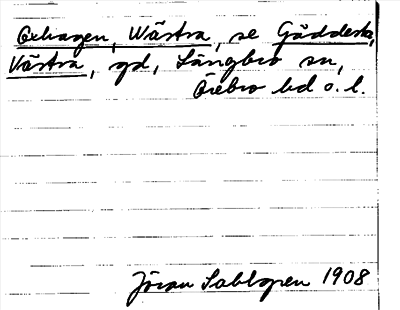 Oxhagen, Wästra, se Gäddesta,
Västra, gd, Längbro sn,
Örebro hd o. l.
Jöran Sahlgren 1908